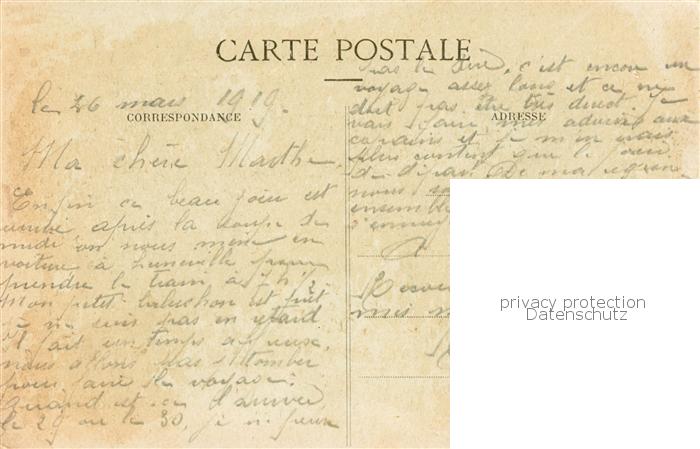 CARTE POSTALE
CORRESPONDANCE
le 26 mars 1919.
Ma chère Marthe
Enfin ce beau jour est
arrivé après la soupe de
midi on nous mène en
voiture à Luneville pour
prendre le train à 5 h
Mon petit baluchon est prêt
je ne suis pas en retard
Il fait un temps affreux
nous allons pas tomber
pour faire le voyage.
quand est ce
le 29 ou le 30, je ne peux
ADRESSE
pas le dire, c'est encore un
voyage assez long et ce ne
doit pas être très direct. Je
vais faire mes adieux aux
copains et je m'en vais
plus content que le jour
du départ. De ma
nous
ensemble
s'ennuy
Recev
mes m
privacy protection
Datenschutz